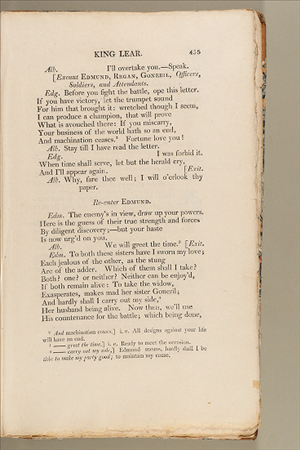 KING LEAR. 455
Alb. I'll overtake you.—Speak.
[Exeunt EDMUND, REGAN, GONERIL, Officers,
Soldiers, and Attendants.
Edg. Before you fight the battle, ope this letter.
If you have victory, let the trumpet sound
For him that brought it: wretched though I seem,
I can produce a champion, that will prove
What is avouched there: If you miscarry,
Your business of the world hath so an end,
And machination ceases.⁶ Fortune love you!
Alb. Stay till I have read the letter.
Edg. I was forbid it.
When time shall serve, let but the herald cry,
And I'll appear again. [Exit.
Alb. Why, fare thee well; I will o'erlook thy
paper.
Re-enter EDMUND.
Edm. The enemy's in view, draw up your powers.
Here is the guess of their true strength and forces
By diligent discovery;—but your haste
Is now urg'd on you.
Alb. We will greet the time. [Exit.
Edm. To both these sisters have I sworn my love;
Each jealous of the other, as the stung
Are of the adder. Which of them shall I take?
Both? one? or neither? Neither can be enjoy'd,
If both remain alive: To take the widow,
Exasperates, makes mad her sister Goneril;
And hardly shall I carry out my side,
Her husband being alive. Now then, we'll use
His countenance for the battle; which being done,
And machination ceases.] i. e. All designs against your life
will have an end.
—— greet the time.] i. e. Be ready to meet the occasion.
—— carry out my side,] Edmund means, hardly shall I be
able to make my party good; to maintain my cause.